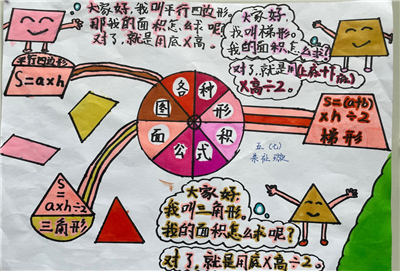 大家好,我叫平行四边形
那我的面积怎么求呢?
对了,就是用底X高。
大家好,
我叫梯形。
我的面积怎么求?
对了,就是用(上底+下底)
X高÷2。
平行四边形
S=axh
各种
图形
面积
公式
S=(a+b)
xh÷2
梯形
五、(七)
S
=
axh÷2
三角形
大家好,
我叫三角形。
我的面积怎么求呢?
对了,就是用底X高÷2。